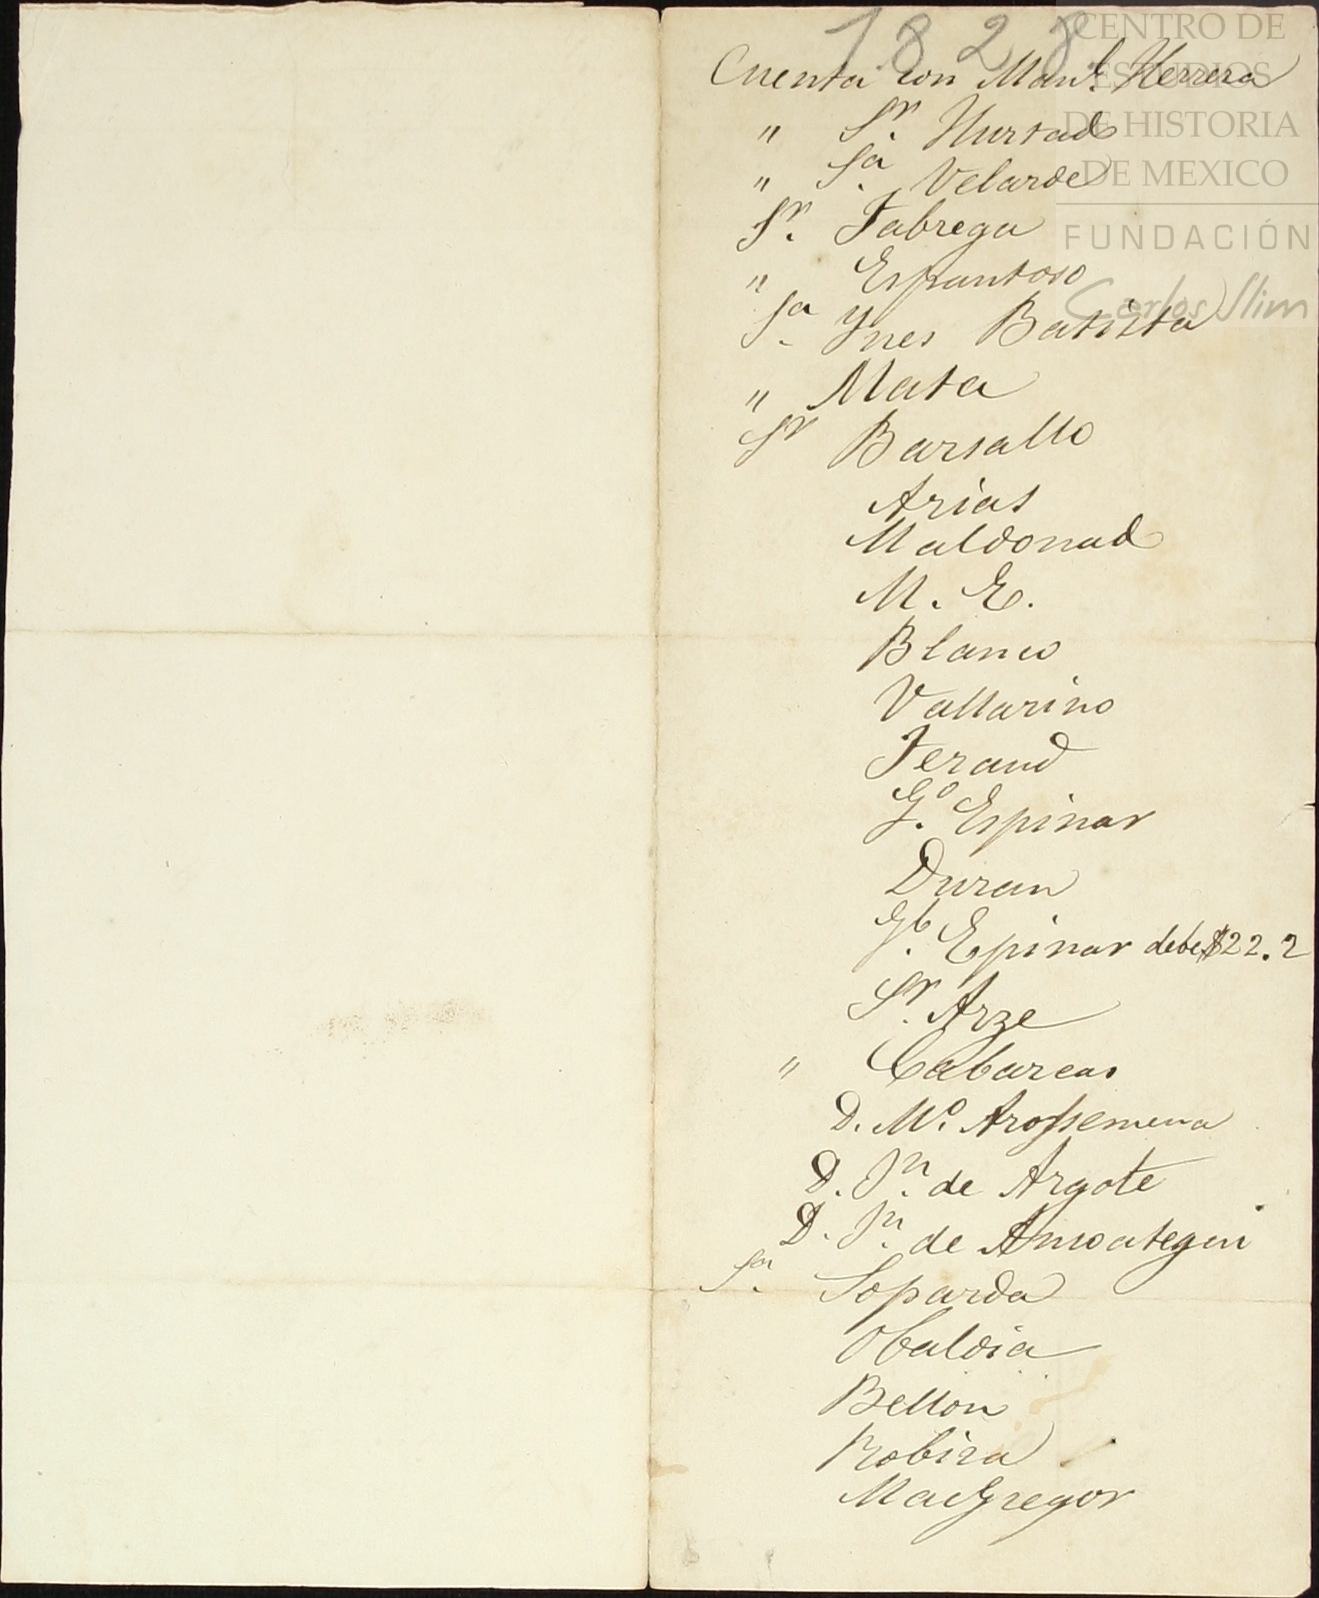 1828.
Cuenta con Man.l Herrera
" Sr. Hurtado
" Sa. Velarde
Sr. Fabrega
" Espantoso
Sa. Ynes Batista
" Mata
Sr Barsallo
Arias
Maldonado
M. E.
Blanco
Vallarino
Feraud
G.o Espinar
Duran
G.l Epinar debe $22.2
Sr. Arze
" Cabarcas
D. M.o Arossemena
D. J.n de Argote
D. J.n de Amoategui
Sa. Soparda
Obaldia
Bellon
Robira
MacGregor
CENTRO DE
ESTUDIOS
DE HISTORIA
DE MEXICO
FUNDACIÓN
Carlos Slim